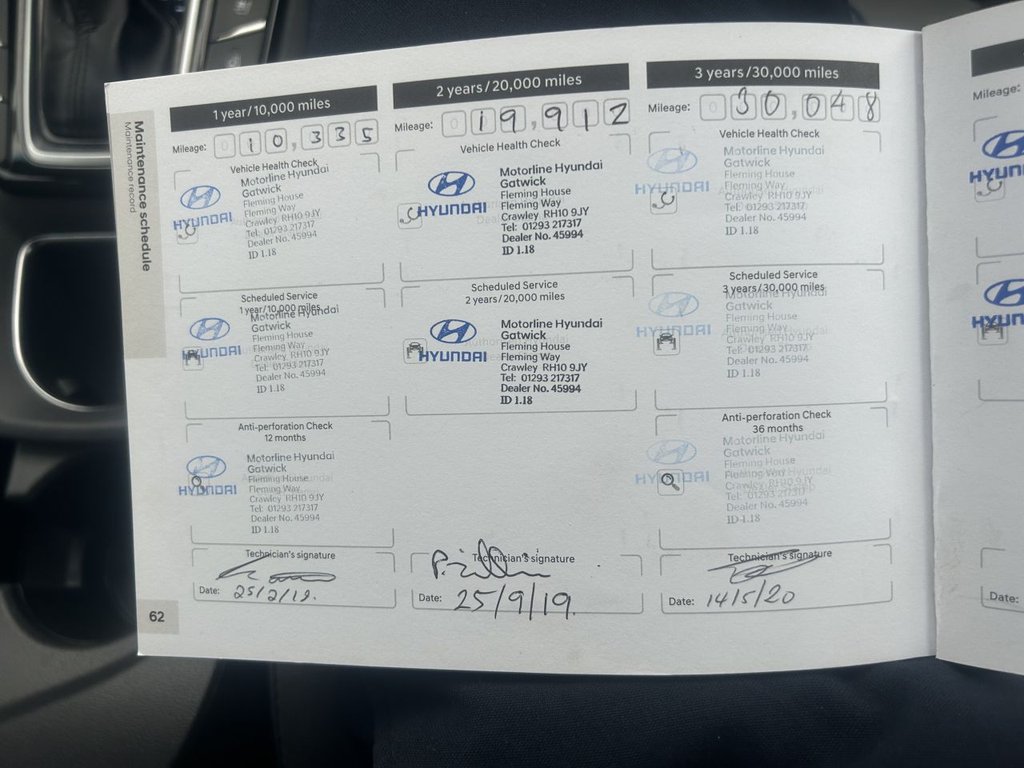 Maintenance schedule
Maintenance record
1 year/10,000 miles
Mileage: 0 10,335
Vehicle Health Check
HYUNDAI
Motorline Hyundai
Gatwick
Fleming House
Fleming Way
Crawley RH10 9JY
Tel: 01293 217317
Dealer No. 45994
ID 1.18
Scheduled Service
1 year/10,000 miles
HYUNDAI
Motorline Hyundai
Gatwick
Fleming House
Fleming Way
Crawley RH10 9JY
Tel: 01293 217317
Dealer No. 45994
ID 1.18
Anti-perforation Check
12 months
HYUNDAI
Motorline Hyundai
Gatwick
Fleming House
Fleming Way
Crawley RH10 9JY
Tel: 01293 217317
Dealer No. 45994
ID 1.18
Technician's signature
Date: 25/2/19.
2 years/20,000 miles
Mileage: 0 19,912
Vehicle Health Check
HYUNDAI
Motorline Hyundai
Gatwick
Fleming House
Fleming Way
Crawley RH10 9JY
Tel: 01293 217317
Dealer No. 45994
ID 1.18
Scheduled Service
2 years/20,000 miles
HYUNDAI
Motorline Hyundai
Gatwick
Fleming House
Fleming Way
Crawley RH10 9JY
Tel: 01293 217317
Dealer No. 45994
ID 1.18
Technician's signature
Date: 25/9/19.
3 years/30,000 miles
Mileage: 0 30,048
Vehicle Health Check
HYUNDAI
Motorline Hyundai
Gatwick
Fleming House
Fleming Way
Crawley RH10 9JY
Tel: 01293 217317
Dealer No. 45994
ID 1.18
Scheduled Service
3 years/30,000 miles
HYUNDAI
Motorline Hyundai
Gatwick
Fleming House
Fleming Way
Crawley RH10 9JY
Tel: 01293 217317
Dealer No. 45994
ID 1.18
Anti-perforation Check
36 months
HYUNDAI
Motorline Hyundai
Gatwick
Fleming House
Fleming Way
Crawley RH10 9JY
Tel: 01293 217317
Dealer No. 45994
ID 1.18
Technician's signature
Date: 14/5/20
62
Mileage:
Date: